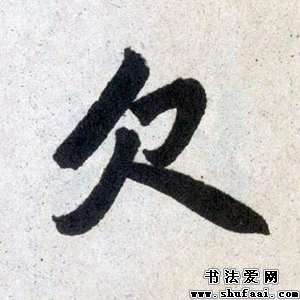 欠
书法爱网
www.shufaai.com